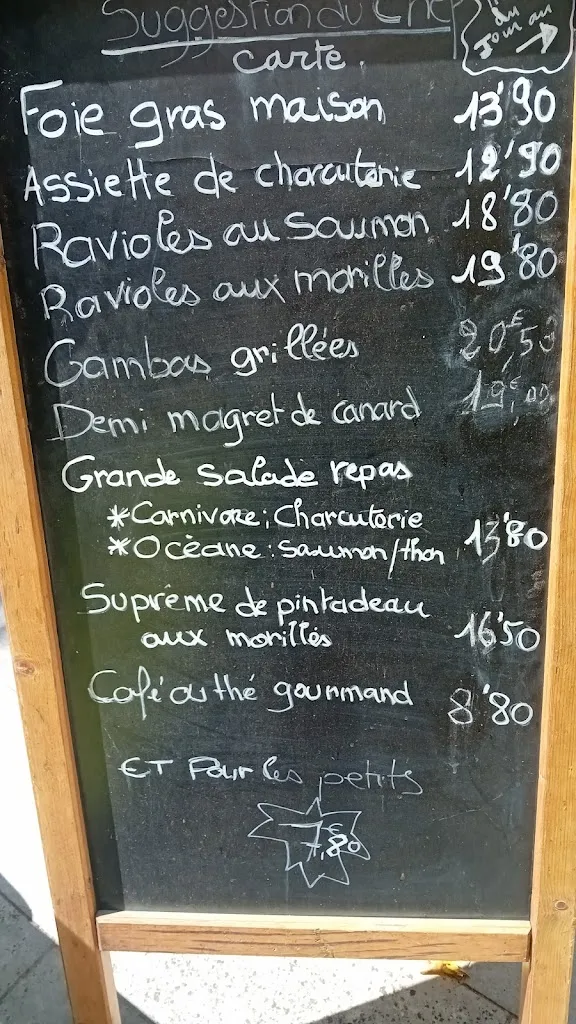 Suggestion du Chef
du
Jour au
carte.
Foie gras maison 13'90
Assiette de charcuterie 12'90
Ravioles au Saumon 18'80
Ravioles aux morilles 19'80
Gambas grillées 20€,50
Demi magret de canard 19€,00
Grande salade repas
*Carnivore; Charcuterie
*Océane: saumon/thon 13'80
Suprême de pintadeau
aux morilles 16'50
Café ou thé gourmand 8'80
ET Pour les petits
7€,80